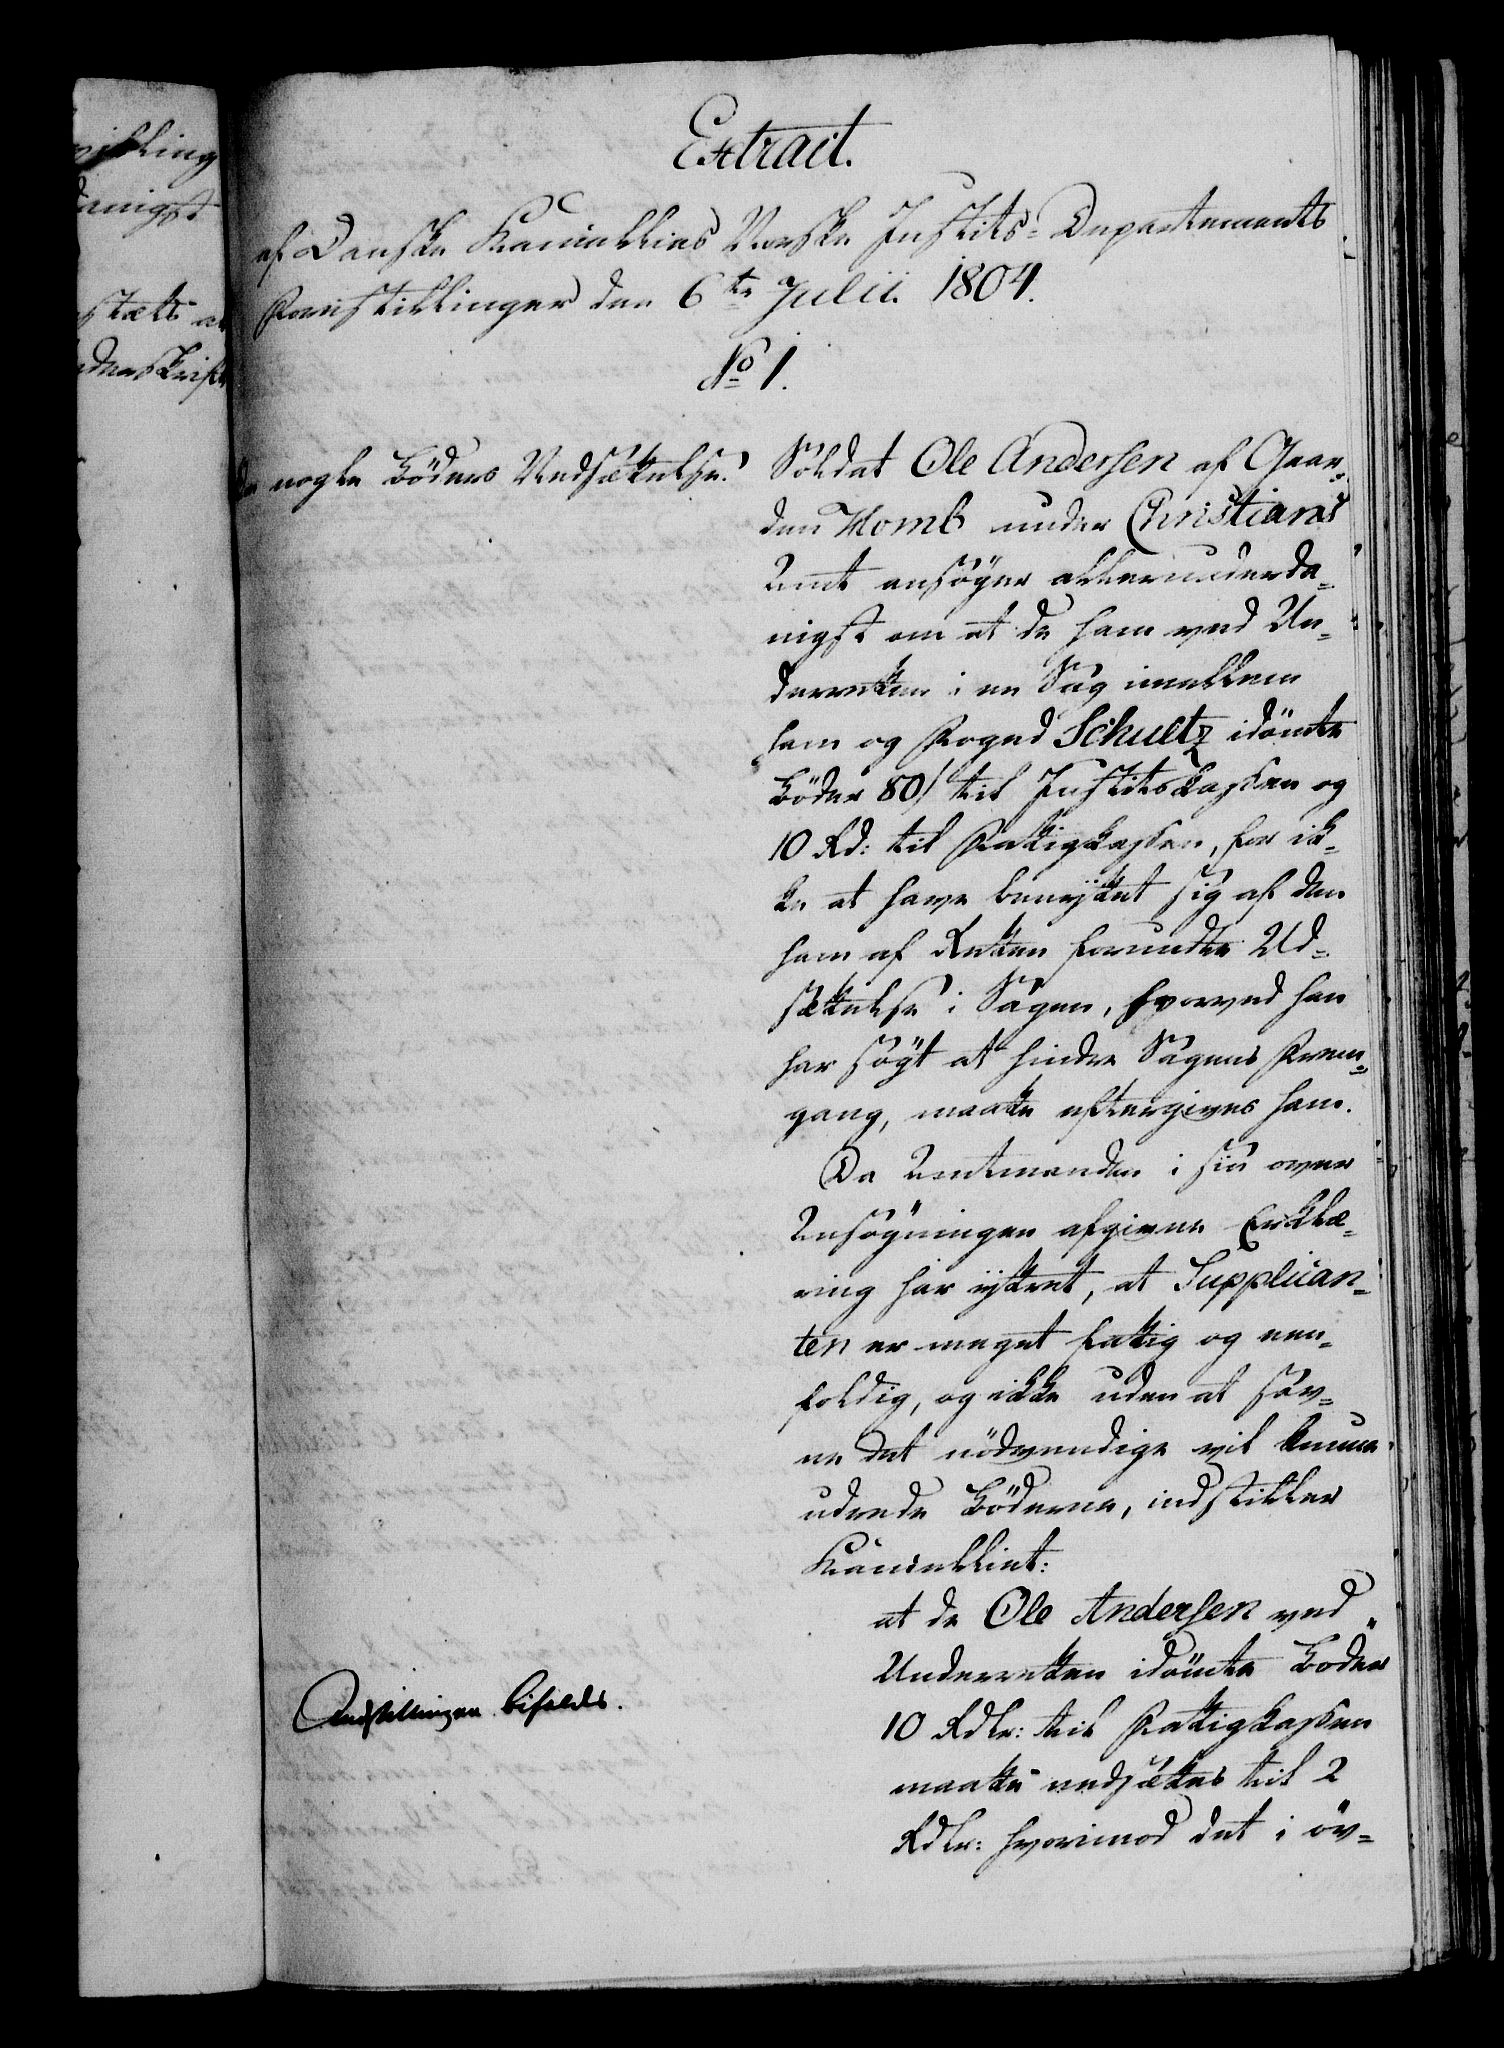 Extrait.
af Danske Kancelliets Norske Justits-Departements
Forestillinger den 6te Julii 1804.
No 1.
nogle Böders Nedsættelse.
Soldat Ole Andersen af Gaar-
den Homb under Christians
Amt ansöger allerunderda-
nigst om at de ham ved Un-
derretten i en Sag imellem
ham og Foged Schultz idömte
Böder 80/ til Justitskassen og
10 Rd: til Fattigkassen, for ik-
ke at have benyttet sig af den
ham af Retten forundte Ud-
sættelse i Sagen, hvorved han
har sögt at hindre Sagens Frem-
gang, maatte eftergives ham.
Da Amtmanden i sin over
Ansögningen afgivne Erklæ-
ring har yttret, at Supplican-
ten er meget fattig og een-
foldig, og ikke uden at sav-
ne det nödvendige vil kunne
udrede Böderne, indstiller
Kancelliet:
at de Ole Andersen ved
Underretten idömte Böder
10 Rdlr: til Fattigkassen
maatte nedsættes til 2
Rdlr: hvorimod det i öv-
Indstillingen bifaldes.